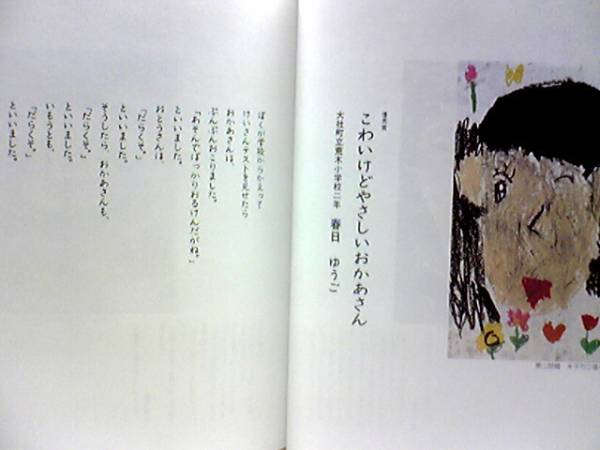 優秀賞
こわいけどやさしいおかあさん
大社町立荒木小学校二年 春日 ゆうご
ぼくが学校からかえって
けいさんテストを見せたら
おかあさんは、
ぷんぷんおこりました。
「あそんでばっかりおるけんだがね。」
といいました。
おとうさんは、
「だらくそ。」
といいました。
そうしたら、おかあさんも、
「だらくそ。」
といいました。
いもうとも、
「だらくそ。」
といいました。